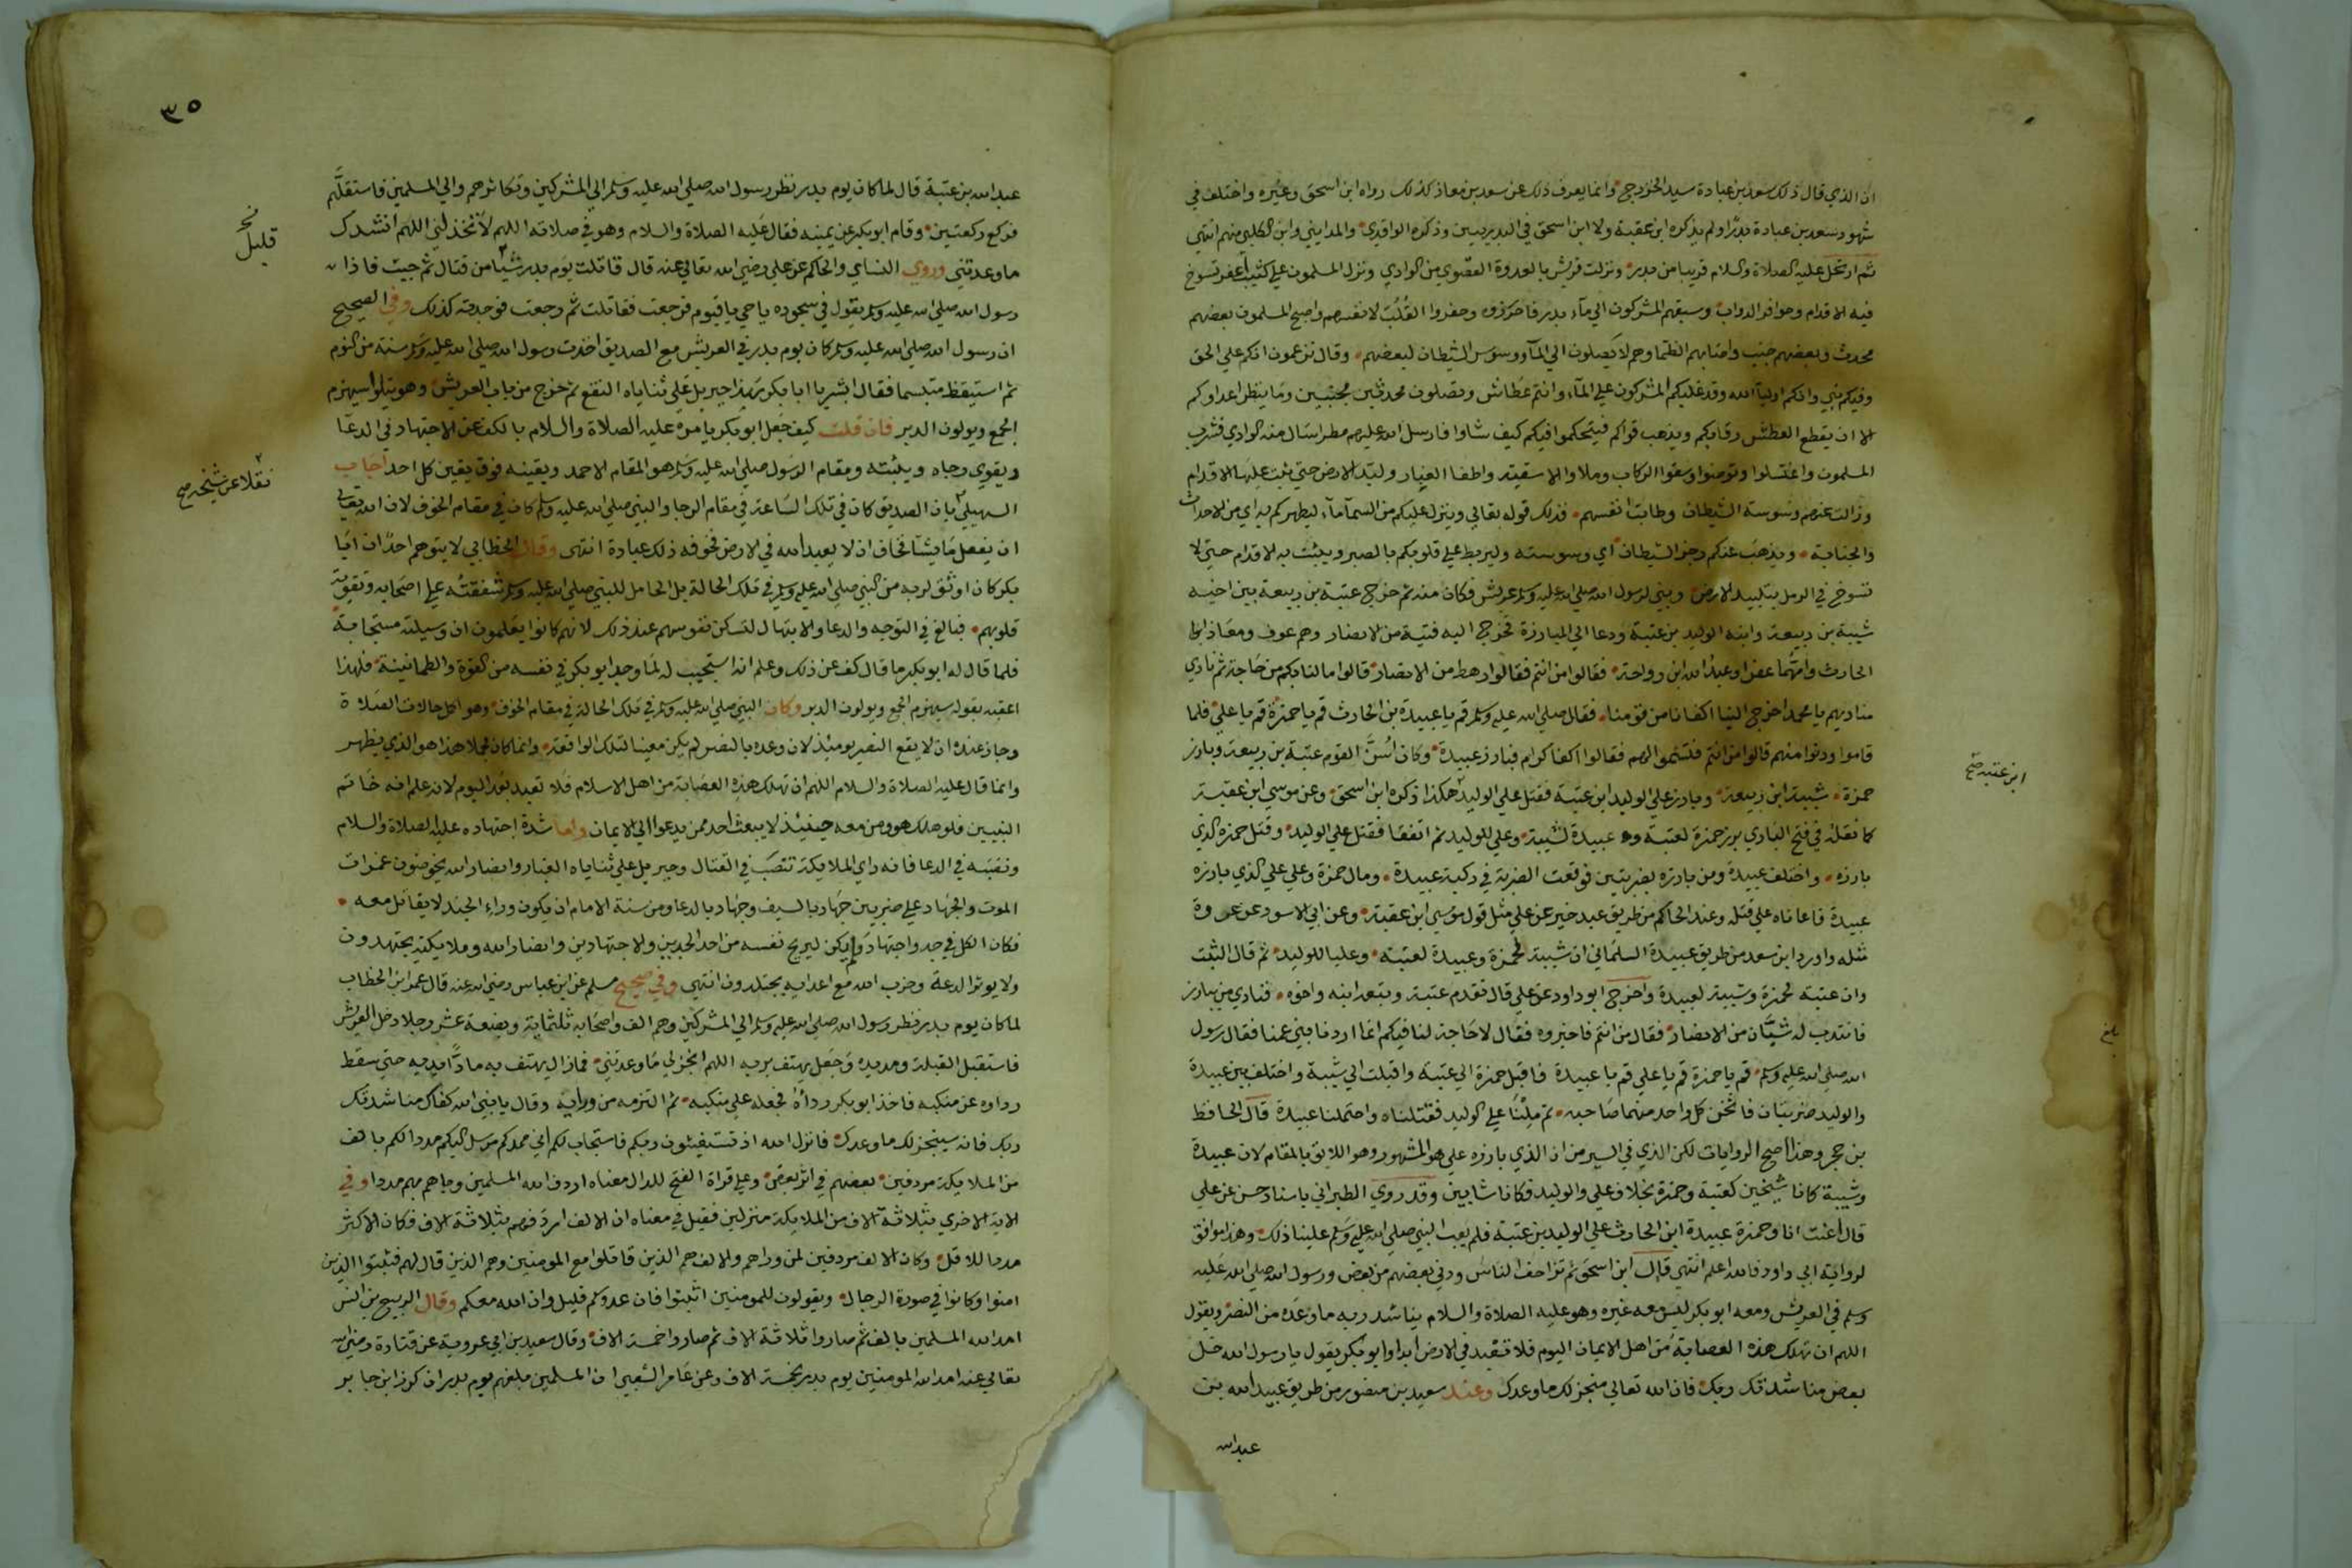 ان الذي قال ذلك سعد بن عبادة سيد الخزرج وانما يعرف ذلك عن سعد بن معاذ كذلك رواه ابن اسحق وغيره واختلف في
شهود سعد بن عبادة بدرا ولم يذكره ابن عقبة ولا ابن اسحق في البدريين وذكره الواقدي والمدايني وابن الكلبي منهم انتهى
ثم ارتحل عليه الصلاة والسلام قريبا من بدر ونزلت قريش بالعدوة القصوي من الوادي ونزل المسلمون علي كثيب أعفر تسوخ
فيه الاقدام وحوافر الدواب وسبقهم المشركون الي مآء بدر فاحرزوه وحفروا القُلُب لانفسهم واصبح المسلمون بعضهم
محدث وبعضهم جنب واصابهم الظما وهم لا يصلون الي المآ ووسوس الشيطان لبعضهم وقال تزعمون انكم علي الحق
وفيكم نبي وانكم اوليآ الله وقد غلبكم المشركون علي المآء وانتم عطاش وتصلون محدثين مجنبين وما ينظر اعداوكم
الا ان يقطع العطش رقابكم ويذهب قواكم فيتحكموا فيكم كيف شاوا فارسل الله عليهم مطرا سال منه الوادي فشرب
المسلمون واغتسلوا وتوضوا وسقوا الركاب وملاوا الاسقية واطفا الغبار ولبد الارض حتي ثبت عليها الاقدام
وزالت عنهم وسوسة الشيطان وطابت انفسهم فذلك قوله تعالي وينزل عليكم من السمآ مآء ليطهركم به اي من الاحداث
والجنابة ويذهب عنكم رجز الشيطان اي وسوسته وليربط علي قلوبكم بالصبر ويثبت به الاقدام حتي لا
تسوخ في الرمل بتلبيد الارض وبني لرسول الله صلي الله عليه وسلم عريش فكان فيه ثم خرج عتبة بن ربيعة بين اخيه
شيبة بن ربيعة وابنه الوليد بن عتبة ودعا الي المبارزة فخرج اليه فتية من الانصار وهم عوف ومعاذ ابنا
الحارث وامهما عفرا وعبد الله ابن رواحة فقالوا من انتم فقالوا رهط من الانصار قالوا ما لنا بكم من حاجة ثم نادي
مناديهم يا محمد اخرج الينا اكفانا من قومنا فقال صلي الله عليه وسلم قم يا عبيدة بن الحارث قم يا حمزة قم يا علي فلما
قاموا ودنوا منهم قالوا من انتم فتسموا لهم فقالوا اكفا كرام فبارز عبيدة وكان اسن القوم عتبة بن ربيعة وبارز
حمزة شيبة ابن ربيعة وبارز علي الوليد ابن عتبة فقتل علي الوليد هكذا ذكره ابن اسحق وعن موسي ابن عقبة
كما نقله في فتح الباري برز حمزة لعتبة وعبيدة لشيبة وعلي للوليد ثم اتفقا فقتل علي الوليد وقتل حمزة الذي
بارزه واختلف عبيدة ومن بارزه بضربتين فوقعت الضربة في ركبة عبيدة ومال حمزة وعلي علي الذي بارزه
عبيدة فاعاناه علي قتله وعند الحاكم من طريق عبد خير عن علي مثل قول موسي ابن عقبة وعن ابي الاسود عن عروة
مثله واورد ابن سعد من طريق عبيدة السلماني ان شيبة لحمزة وعبيدة لعتبة وعليا للوليد ثم قال الثبت
وان عتبة لحمزة وشيبة لعبيدة واخرج ابو داود عن علي قال تقدم عتبة وتبعه ابنه واخوه فنادي من يبارز
فانتدب له شبان من الانصار فقال من انتم فاخبروه فقال لا حاجة لنا فيكم انما اردنا بني عمنا فقال رسول
الله صلي الله عليه وسلم قم يا حمزة قم يا علي قم يا عبيدة فاقبل حمزة الي عتبة واقبلت الي شيبة واختلف بين عبيدة
والوليد ضربتان فاثخن كل واحد منهما صاحبه ثم ملنا علي الوليد فقتلناه واحتملنا عبيدة قال الحافظ
بن حجر وهذا اصح الروايات لكن الذي في السير من ان الذي بارزه علي هو المشهور وهو اللايق بالمقام لان عبيدة
وشيبة كانا شيخين كعتبة وحمزة بخلاف علي والوليد فكانا شابين وقد روي الطبراني باسناد حسن عن علي
قال اعنت انا وحمزة عبيدة ابن الحارث علي الوليد بن عتبة فلم يعب النبي صلي الله عليه وسلم علينا ذلك وهذا موافق
لرواية ابي داود فالله اعلم انتهي قال ابن اسحق ثم تزاحف الناس ودني بعضهم من بعض ورسول الله صلي الله عليه
وسلم في العريش ومعه ابو بكر ليس معه غيره وهو عليه الصلاة والسلام يناشد ربه ما وعده من النصر ويقول
اللهم ان تهلك هذه العصابة من اهل الايمان اليوم فلا تعبد في الارض ابدا وابو بكر يقول يا رسول الله خل
بعض مناشدتك ربك فان الله تعالي منجز لك ما وعدك وعند سعيد بن منصور من طريق عبيد الله بن
عبد الله
ابن عتبة صح
بلغ
٣٥
عبد الله بن عتبة قال لما كان يوم بدر نظر رسول الله صلي الله عليه وسلم الي المشركين وتكاثرهم والي المسلمين فاستقلهم
فركع ركعتين وقام ابو بكر عن يمينه فقال عليه الصلاة والسلام وهو في صلاته اللهم لا تخذلني اللهم انشدك
ما وعدتني وروي النساي والحاكم عن علي رضي الله تعالي عنه قال قاتلت يوم بدر شيا من قتال ثم جيت فاذا
رسول الله صلي الله عليه وسلم يقول في سجوده يا حي يا قيوم فرجعت فقاتلت ثم رجعت فوجدته كذلك وفي الصحيح
ان رسول الله صلي الله عليه وسلم كان يوم بدر في العريش مع الصديق اخذت رسول الله صلي الله عليه وسلم سنة من النوم
ثم استيقظ متبسما فقال ابشر يا ابا بكر هذا جبريل علي ثناياه النقع ثم خرج من باب العريش وهو يتلوا سيهزم
الجمع ويولون الدبر فان قلت كيف جعل ابو بكر يامره عليه الصلاة والسلام بالكف عن الاجتهاد في الدعا
ويقوي رجاه ويثبته ومقام الرسول صلي الله عليه وسلم هو المقام الاحمد ويقينه فوق يقين كل احد اجاب
السهيلي بان الصديق كان في تلك الساعة في مقام الرجا والنبي صلي الله عليه وسلم كان في مقام الخوف لان الله تعالي
ان يفعل ما يشا فخاف ان لا يعبد الله في الارض فخوفه ذلك عبادة انتهى وقال الخطابي لا يتوهم احد ان ابا
بكر كان اوثق لربه من النبي صلي الله عليه وسلم في تلك الحالة بل الحامل للنبي صلي الله عليه وسلم شفقته علي اصحابه وتقوية
قلوبهم فبالغ في التوجه والدعا والابتهال لتسكن نفوسهم عند ذلك لانهم كانوا يعلمون ان وسيلته مستجابة
فلما قال له ابو بكر ما قال كف عن ذلك وعلم انه استجيب له لما وجد ابو بكر في نفسه من القوة والطمانينة فلهذا
اعقبه بقوله سيهزم الجمع ويولون الدبر وكان النبي صلي الله عليه وسلم في تلك الحالة في مقام الخوف وهو اكمل حالات الصلاة
وجاز عنده ان لا يقع النصر يوميذ لان وعده بالنصر لم يكن معينا لتلك الواقعة وانما كان مجملا هذا هو الذي يظهر
وانما قال عليه الصلاة والسلام اللهم ان تهلك هذه العصابة من اهل الاسلام فلا تعبد بعد اليوم لانه علم انه خاتم
النبيين فلو هلك هو ومن معه حينيذ لا يبعث احد ممن يدعوا الي الايمان واما شدة اجتهاده عليه الصلاة والسلام
ونصبه في الدعا فانه راي الملايكة تنصب في القتال وجبريل علي ثناياه الغبار وانصار الله يخوضون غمرات
الموت والجهاد علي ضربين جهاد بالسيف وجهاد بالدعا ومن سنة الامام ان يكون وراء الجند لا يقاتل معه
فكان الكل في جد واجتهاد ولم يكن ليريح نفسه من احد الجدين والاجتهادين وانصار الله وملايكته يجتهدون
ولا يوثر الدعة وحزب الله مع اعدايه يجتلدون انتهي وفي صحيح مسلم عن ابن عباس رضي الله عنه قال عمر ابن الخطاب
لما كان يوم بدر نظر رسول الله صلي الله عليه وسلم الي المشركين وهم الف واصحابه ثلثماية وبضعة عشر رجلا دخل العريش
فاستقبل القبلة ومد يده وجعل يهتف بربه اللهم انجز لي ما وعدتني فما زال يهتف به مادا يديه حتي سقط
رداوه عن منكبه فاخذ ابو بكر رداه فجعله علي منكبه ثم التزمه من ورايه وقال يا نبي الله كفاك مناشدتك
ربك فانه سينجز لك ما وعدك فانزل الله اذ تستغيثون ربكم فاستجاب لكم اني ممدكم مرسل اليكم مددا لكم بالف
من الملايكة مردفين بعضهم في اثر بعض وعلي قراة الفتح للدال معناه اردف الله المسلمين وجاهم بهم مددا وفي
الاية الاخري بثلاثة آلاف من الملايكة منزلين فقيل في معناه ان الالف اردفهم بثلاثة الاف فكان الاكثر
مددا للاقل وكان الالف مردفين لمن وراهم والالف هم الذين قاتلوا مع المومنين وهم الذين قال لهم فثبتوا الذين
امنوا وكانوا في صورة الرجال ويقولون للمومنين اثبتوا فان عدوكم قليل وان الله معكم وقال الربيع بن انس
امد الله المسلمين بالف ثم صاروا ثلاثة الاف ثم صاروا خمسة الاف وقال سعيد بن ابي عروبة عن قتادة رضي الله
تعالي عنه امد الله المومنين يوم بدر بخمسة الاف وعن عامر الشعبي ان المسلمين بلغهم يوم بدر ان كرز ابن جابر
قليل
نقلا عن شيخه صح